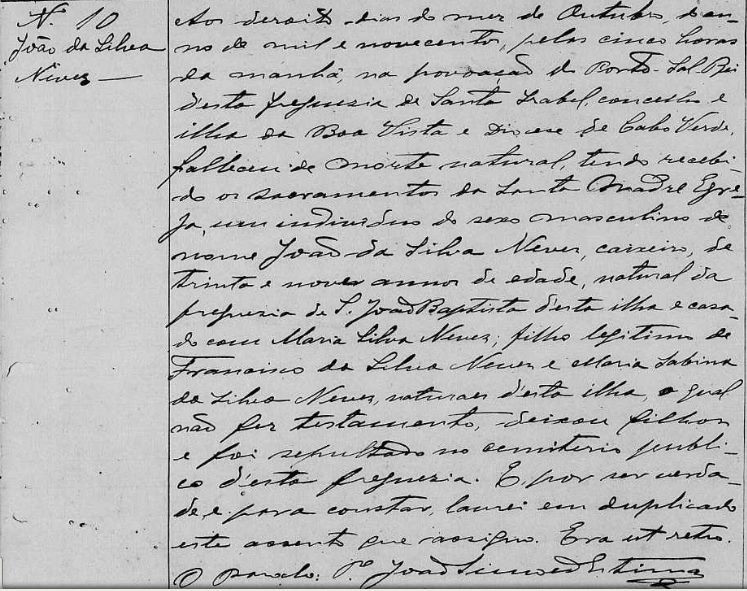 N. 10
João da Silva
Neves
Aos dezoito dias do mez de Outubro, do an-
no de mil e novecentos, pelas cinco horas
da manhã, na povoação do Porto-Sal-Rei
d'esta freguezia de Santa Izabel, concelho e
ilha da Boa Vista e Diocese de Cabo Verde,
falleceu de morte natural, tendo recebi-
do os sacramentos da Santa Madre Egre-
ja, um individuo do sexo masculino de
nome João da Silva Neves, caixeiro, de
trinta e nove annos de edade, natural da
freguezia de S. João Baptista d'esta ilha e casa-
do com Maria Silva Neves; filho legitimo de
Francisco da Silva Neves e Maria Sabina
da Silva Neves, naturaes d'esta ilha, o qual
não fez testamento, deixou filhos
e foi sepultado no cemiterio publi-
co d'esta freguezia. E, por ser verda-
de e para constar, lavrei em duplicado
este assento que assigno. Era ut retro.
O Parocho: P.e João Simoed Estima